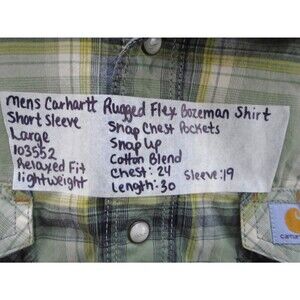 Mens Carhartt Rugged Flex Bozeman Shirt
Short Sleeve
Large
103552
Relaxed Fit
lightweight
Snap Chest Pockets
Snap Up
Cotton Blend
Chest: 24
Sleeve: 19
Length: 30